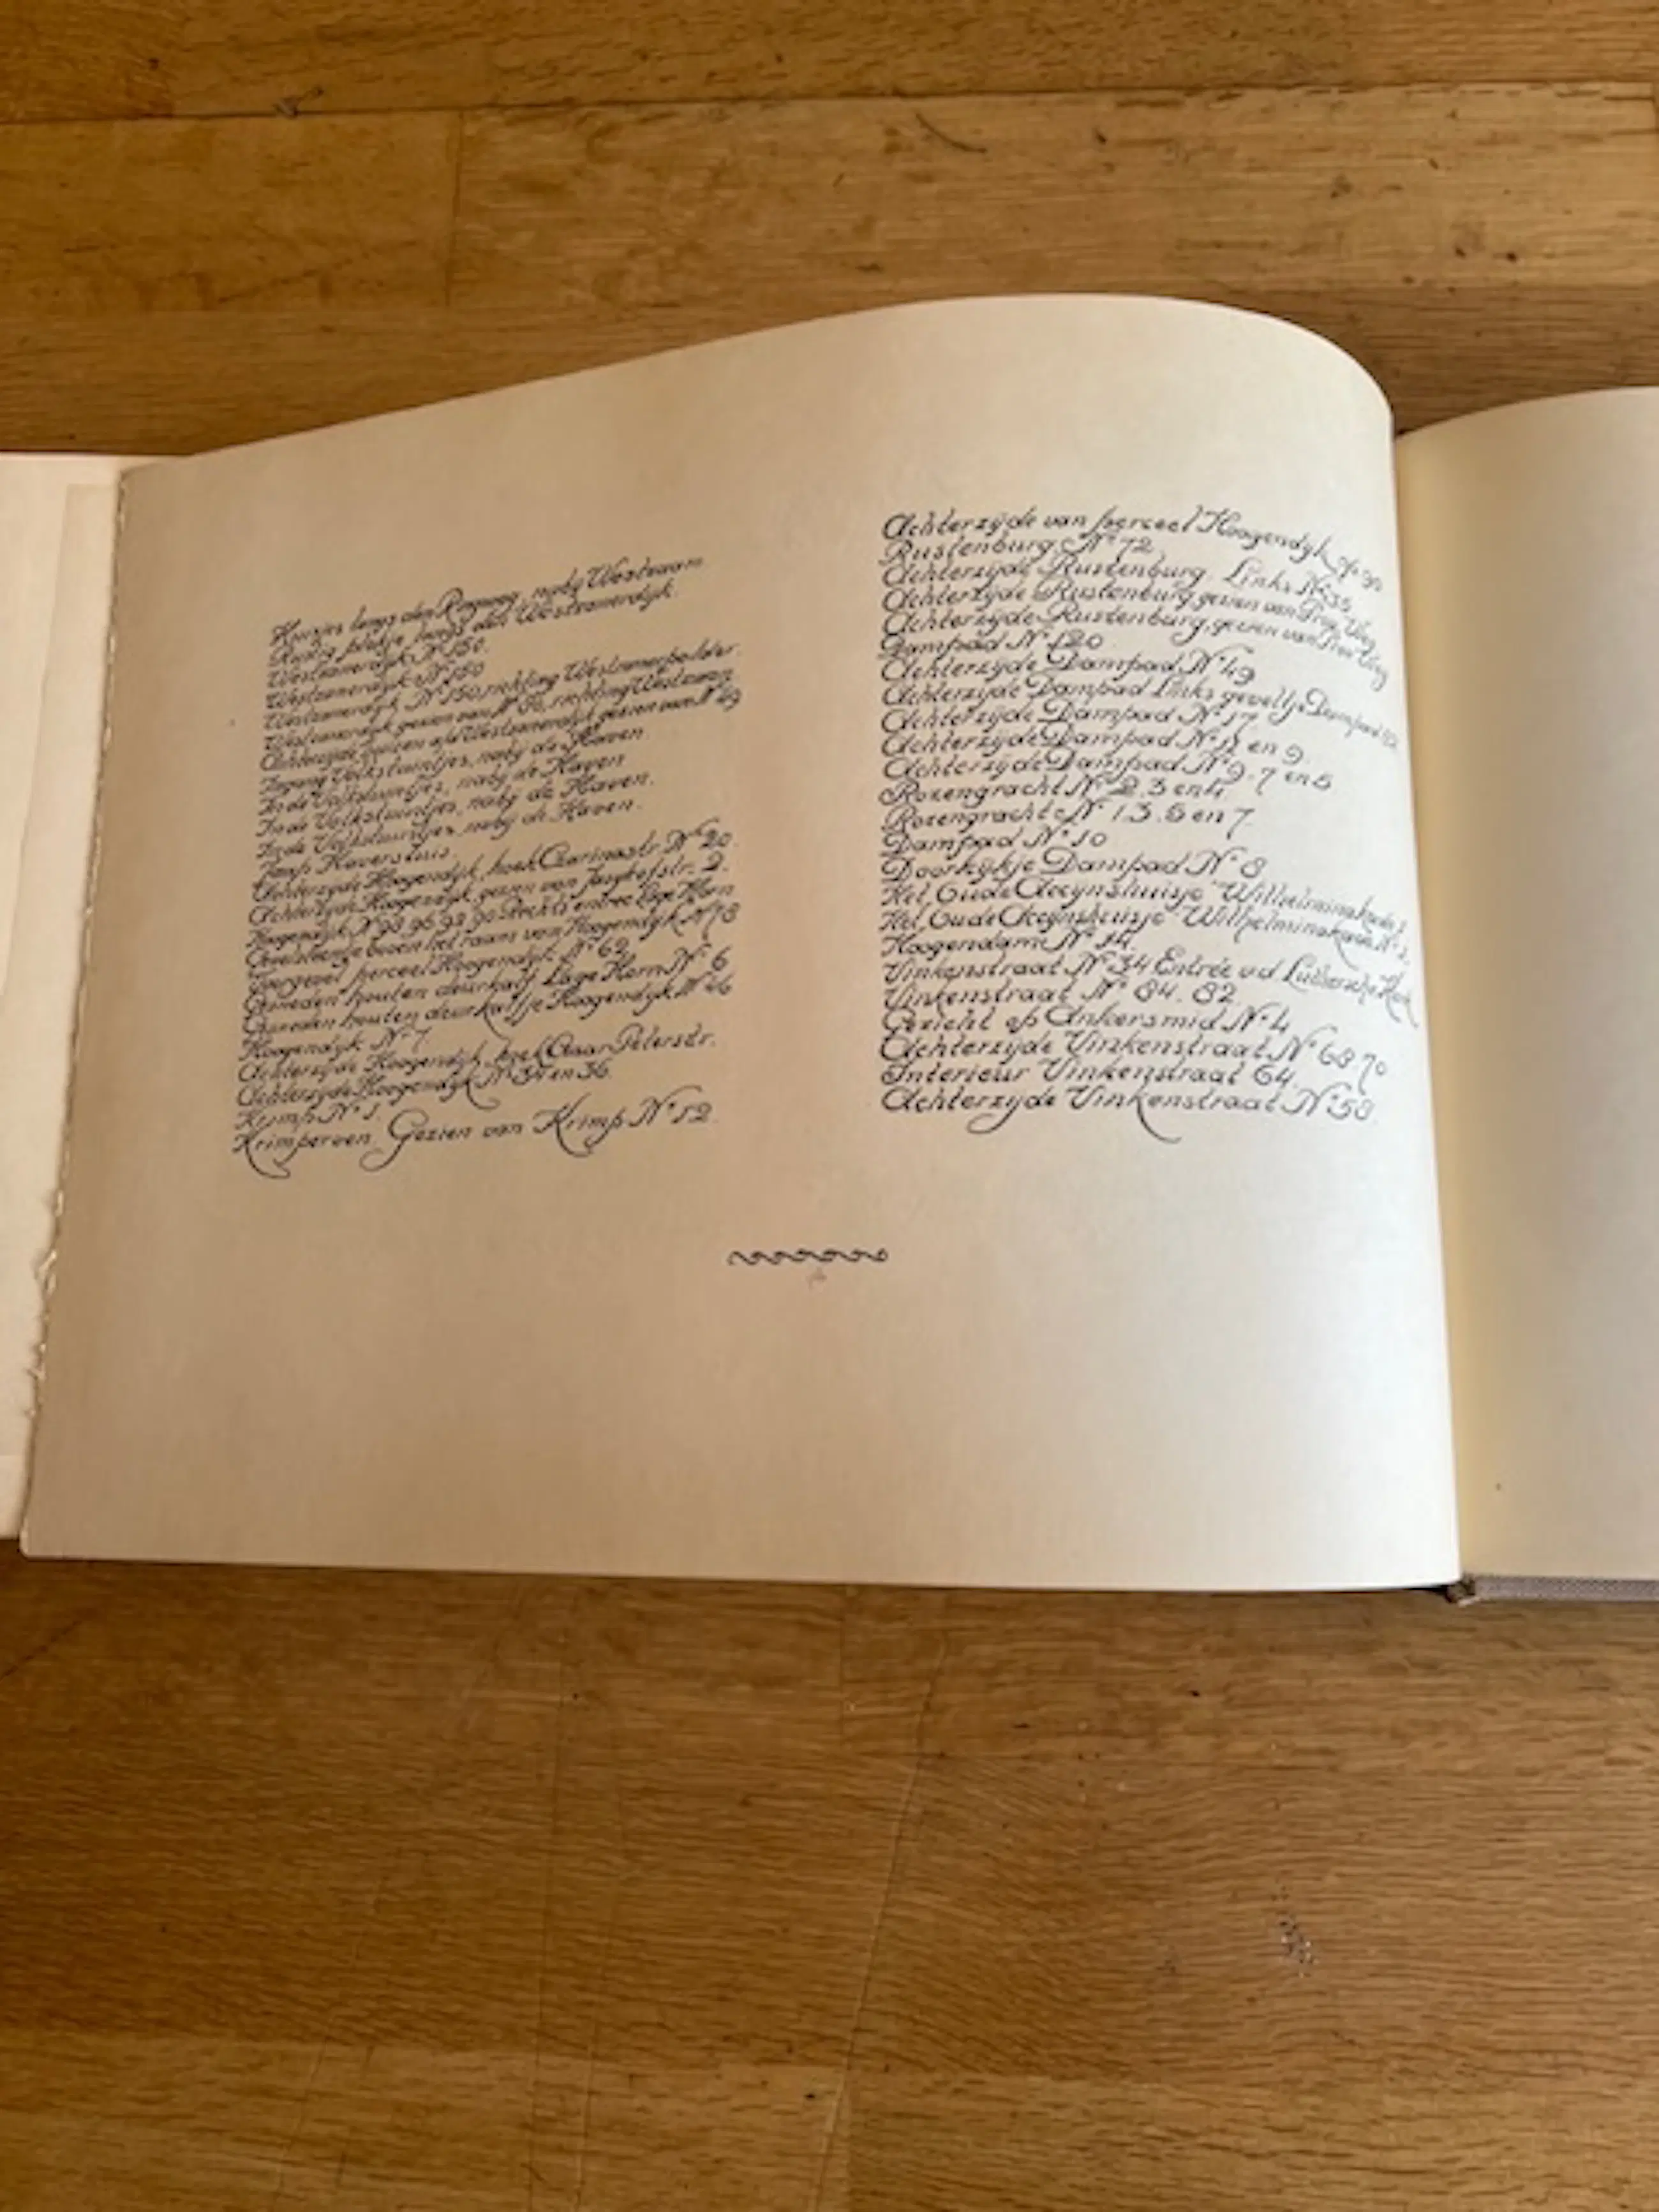 Huisjes langs den Ringweg, naby Westzaan
Rustig plekje langs den Westzanerdyk.
Westzanerdyk Nº 150.
Westzanerdyk Nº 150
Westzanerdyk Nº 150, richting Westzanerpolder.
Westzanerdyk gezien van Nº richting Westzaan
Achterzyde huizen a/d Westzanerdyk gezien van Nº 49
Ingang Volkstuintjes, naby de Haven
In de Volkstuintjes, naby de Haven
In de Volkstuintjes, naby de Haven.
In de Volkstuintjes, naby de Haven.
Haversluis
Achterzyde Hoogendyk, hoek Czarinastr. Nº 20.
Achterzyde Hoogendyk, gezien van str. 2.
Hoogendyk Nº 98.96.92.90. Rechts entree Lage Horn
Gevelsteentje boven het raam van Hoogendyk Nº 78
Voorgevel perceel Hoogendyk Nº 62
Gesneden houten deurkalf Lage Horn Nº 6
Gesneden houten deurkalfje Hoogendyk Nº 46
Hoogendyk Nº 7.
Achterzyde Hoogendyk, hoek Czaar Peterstr.
Achterzyde Hoogendyk Nº 34 en 36.
Krimp Nº 1.
Krimperven, Gezien van Krimp Nº 12.
Achterzyde van perceel Hoogendyk Nº 30
Rustenburg Nº 72
Achterzyde Rustenburg. Links Nº 35
Achterzyde Rustenburg gezien van Prov. Weg
Achterzyde Rustenburg, gezien van Prov. Weg
Dampad Nº 120
Achterzyde Dampad Nº 49
Achterzyde Dampad Links geveltje Dampad
Achterzyde Dampad Nº 17
Achterzyde Dampad Nº 11 en 9.
Achterzyde Dampad Nº 9. 7 en 5
Rozengracht Nº 2. 3 en 4.
Rozengracht Nº 1. 3. 5 en 7.
Dampad Nº 10
Doorkykje Dampad Nº 8
Het Oude Accynshuisje Wilhelminakade 1.
Het Oude Accynshuisje Wilhelminakade Nº 1.
Hoogendam Nº 14.
Vinkenstraat Nº 34 Entrée v.d Luthersche Kerk
Vinkenstraat Nº 84. 82.
Gezicht op Ankersmid Nº 4
Achterzyde Vinkenstraat Nº 68 70
Interieur Vinkenstraat 64.
Achterzyde Vinkenstraat Nº 58.